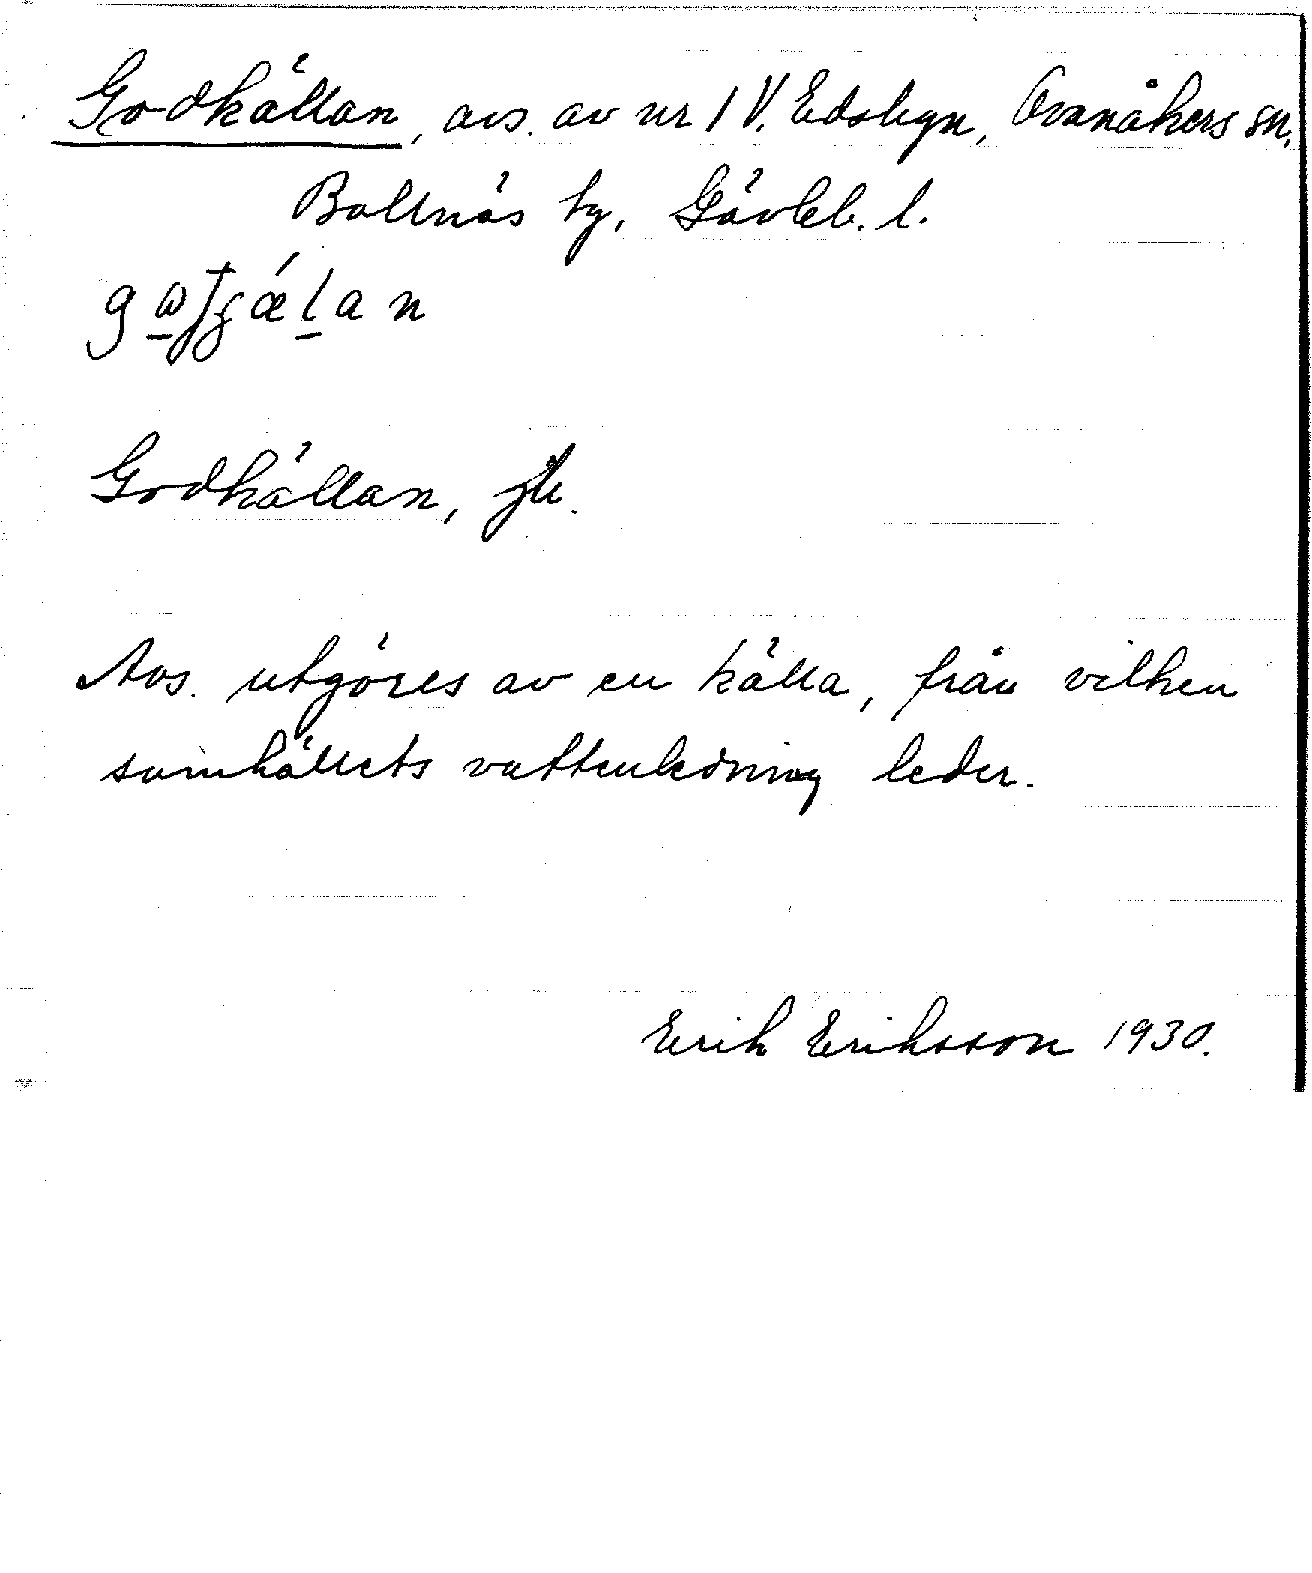 Godkällan, avs. av nr 1 V. Edsbyn, Ovanåkers sn.
Bollnäs tg, Gävleb. l.
Godkällan, jb.
Avs. utgöres av en källa, från vilken
samhällets vattenledning leder.
Erik Eriksson 1930.